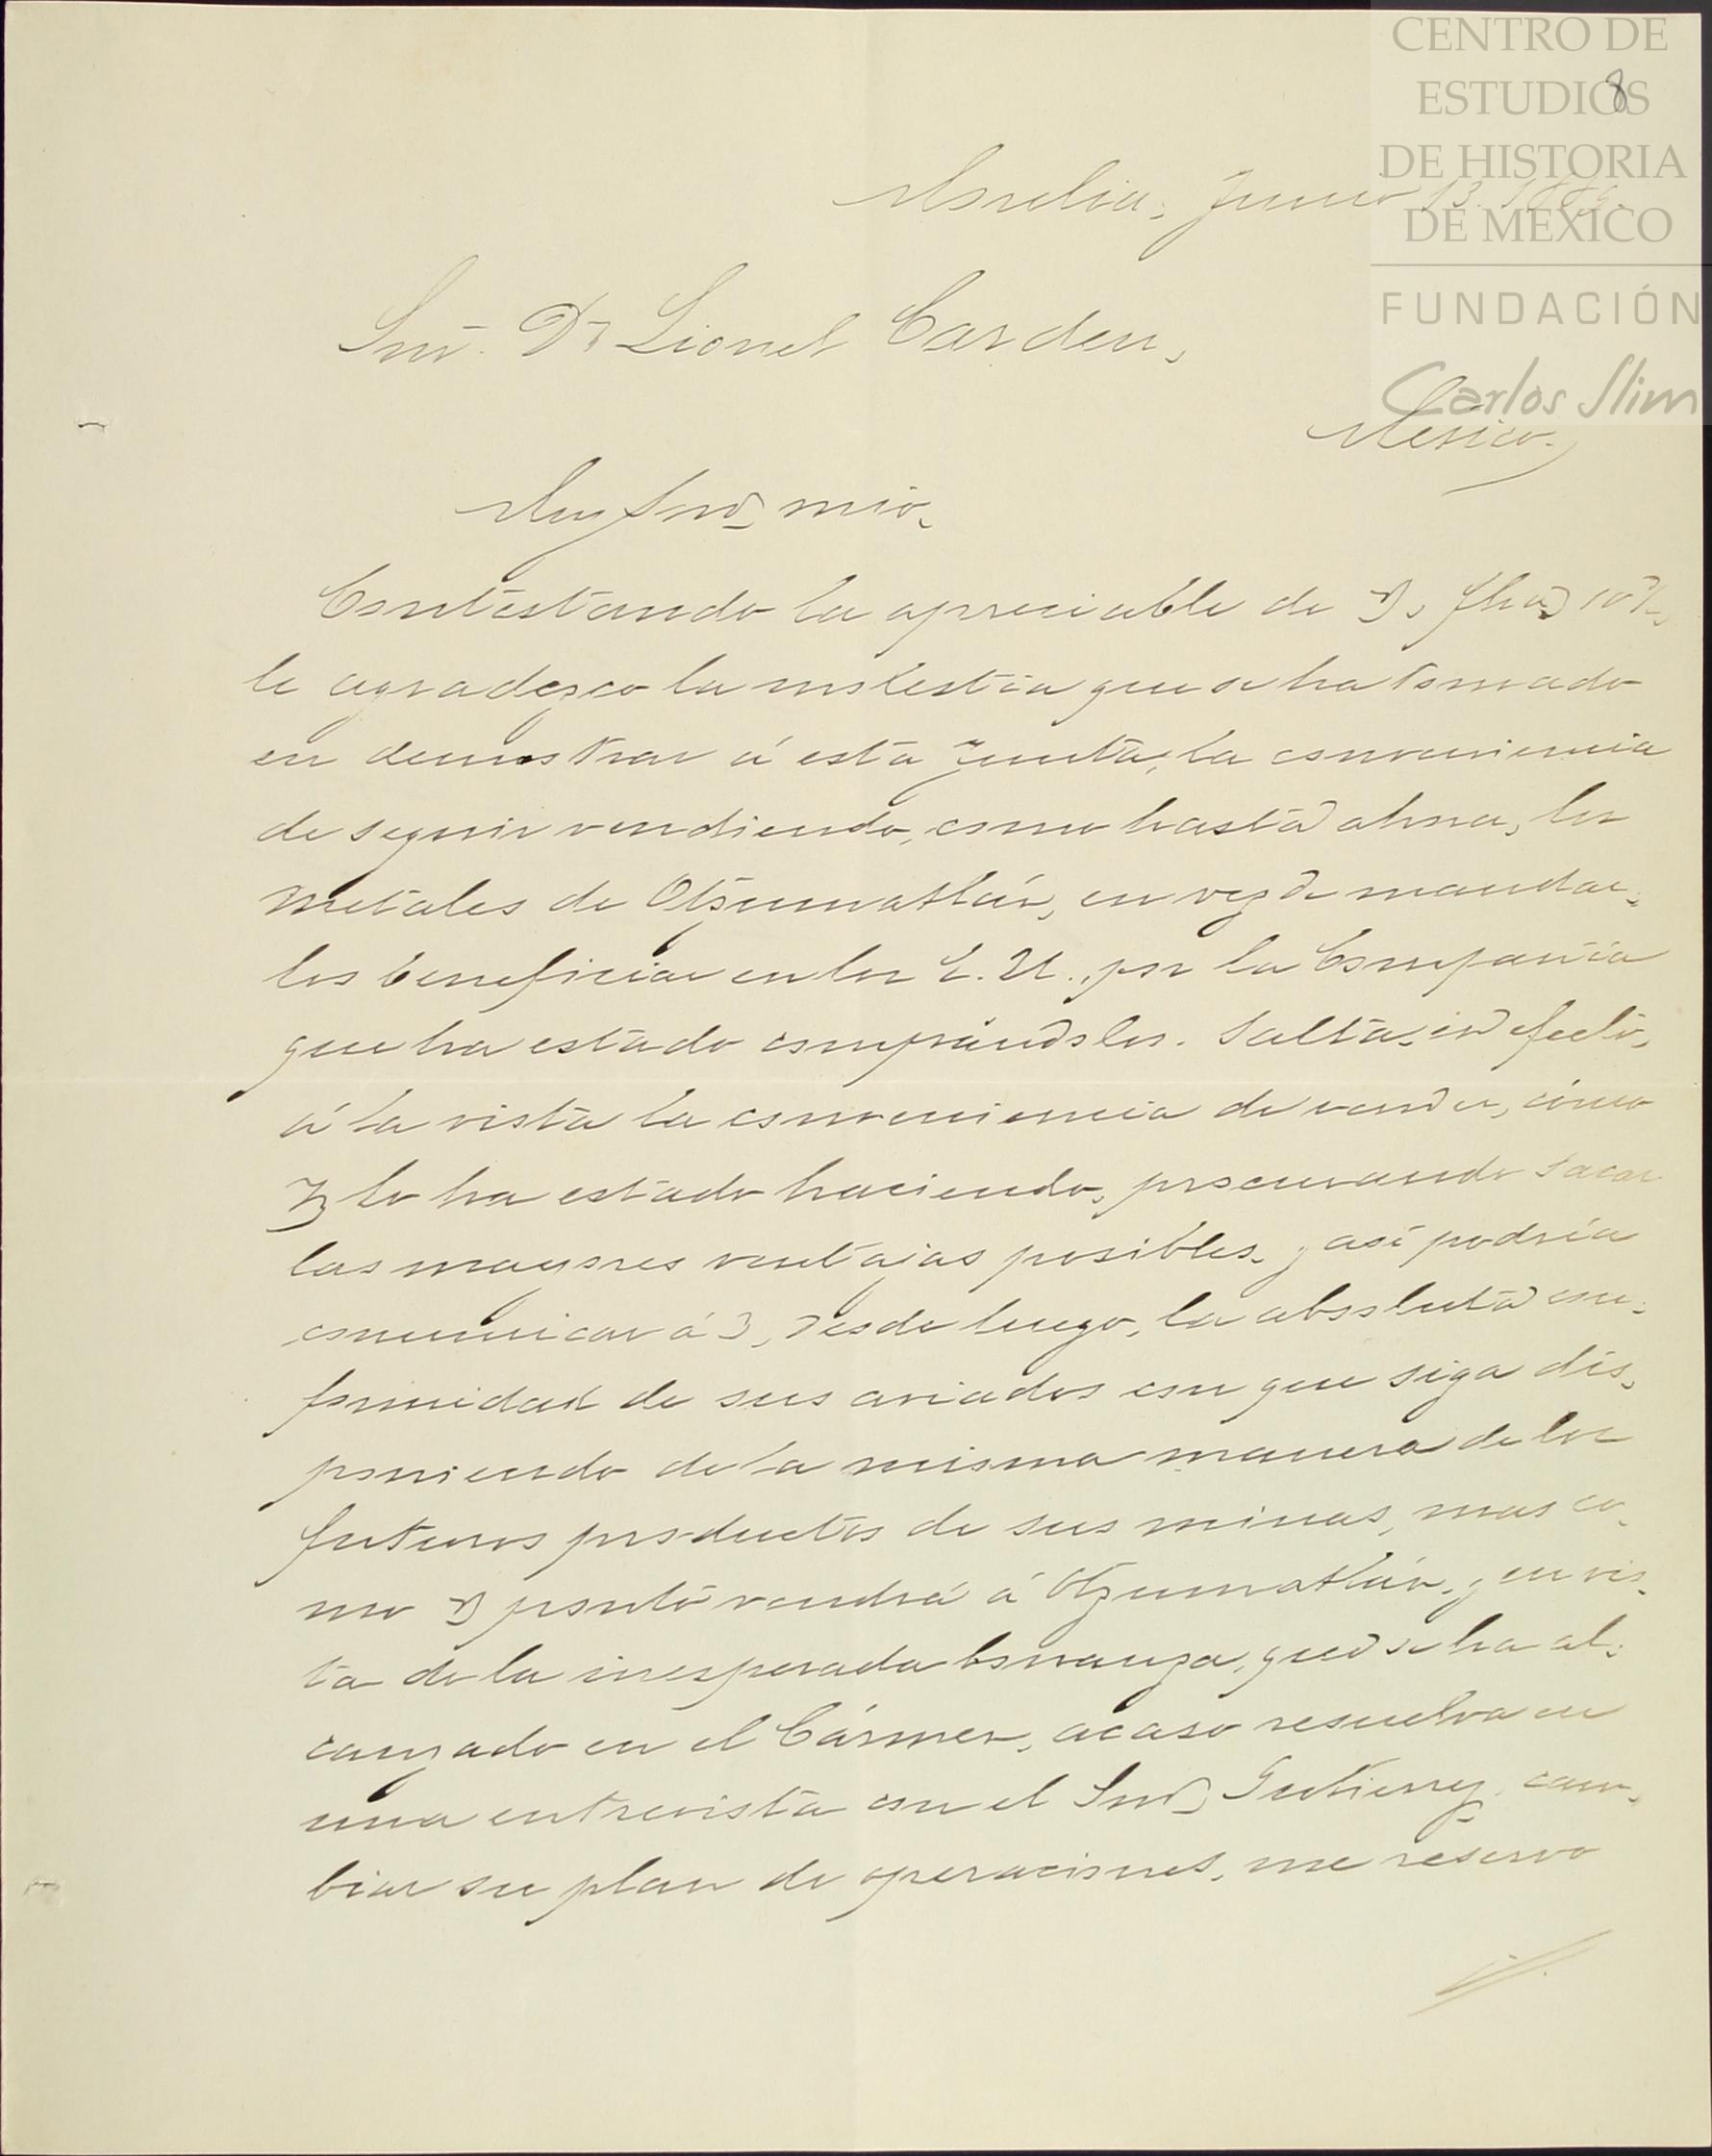 CENTRO DE
ESTUDIOS
DE HISTORIA
DE MEXICO
FUNDACIÓN
Carlos Slim
8
Morelia, Junio 13. 1889.
Snr. Dn Lionel Carden,
México.
Muy Snr mio.
Contestando la apreciable de V, fha 10
le agradezco la molestia que se ha tomado
en demostrar á esta Junta, la conveniencia
de seguir vendiendo, como hasta ahora, los
metales de Otzumatlán, en vez de mandar-
los beneficiar en los E. U., por la Compañia
que ha estado comprándolos. Salta, en efecto,
á la vista la conveniencia de vender, cómo
V lo ha estado haciendo, procurando sacar
las mayores ventajas posibles, y asi podria
comunicar á V, desde luego, la absoluta con-
formidad de sus aviados con que siga dis-
poniendo de la misma manera de los
futuros productos de sus minas, mas co-
mo V pronto vendrá á Otzumatlán, y en vis-
ta de la inesperada bonanza, que se ha al-
canzado en el Cármen, acaso resuelva en
una entrevista con el Snr Gutierrez cam-
biar su plan de operaciones, me reservo